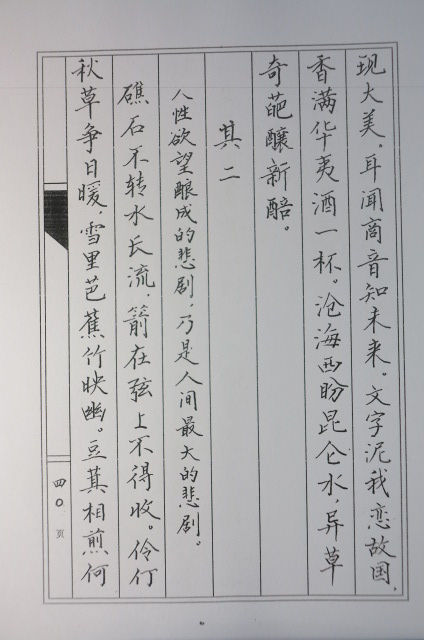 现大美，耳闻商音知未来。文字泥我恋故国，
香满华夷酒一杯。沧海西盼昆仑水，异草
奇葩酿新醅。
其二
人性欲望酿成的悲剧，乃是人间最大的悲剧。
礁石不转水长流，箭在弦上不得收。伶仃
秋草争日暖，雪里芭蕉竹映幽。豆萁相煎何
四〇页